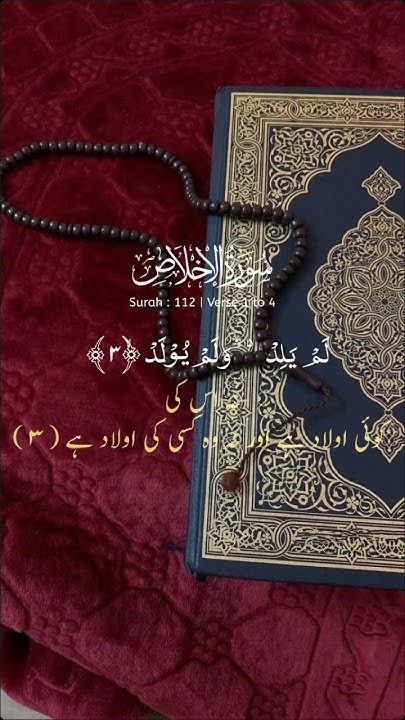 سُورَةُ الإِخْلَاصِ
Surah : 112 | Verse 1 to 4
لَمْ يَلِدْ ۙ وَلَمْ يُوْلَدْ ﴿۳﴾
نہ اس کی
کوئی اولاد ہے اور نہ وہ کسی کی اولاد ہے ( ۳ )